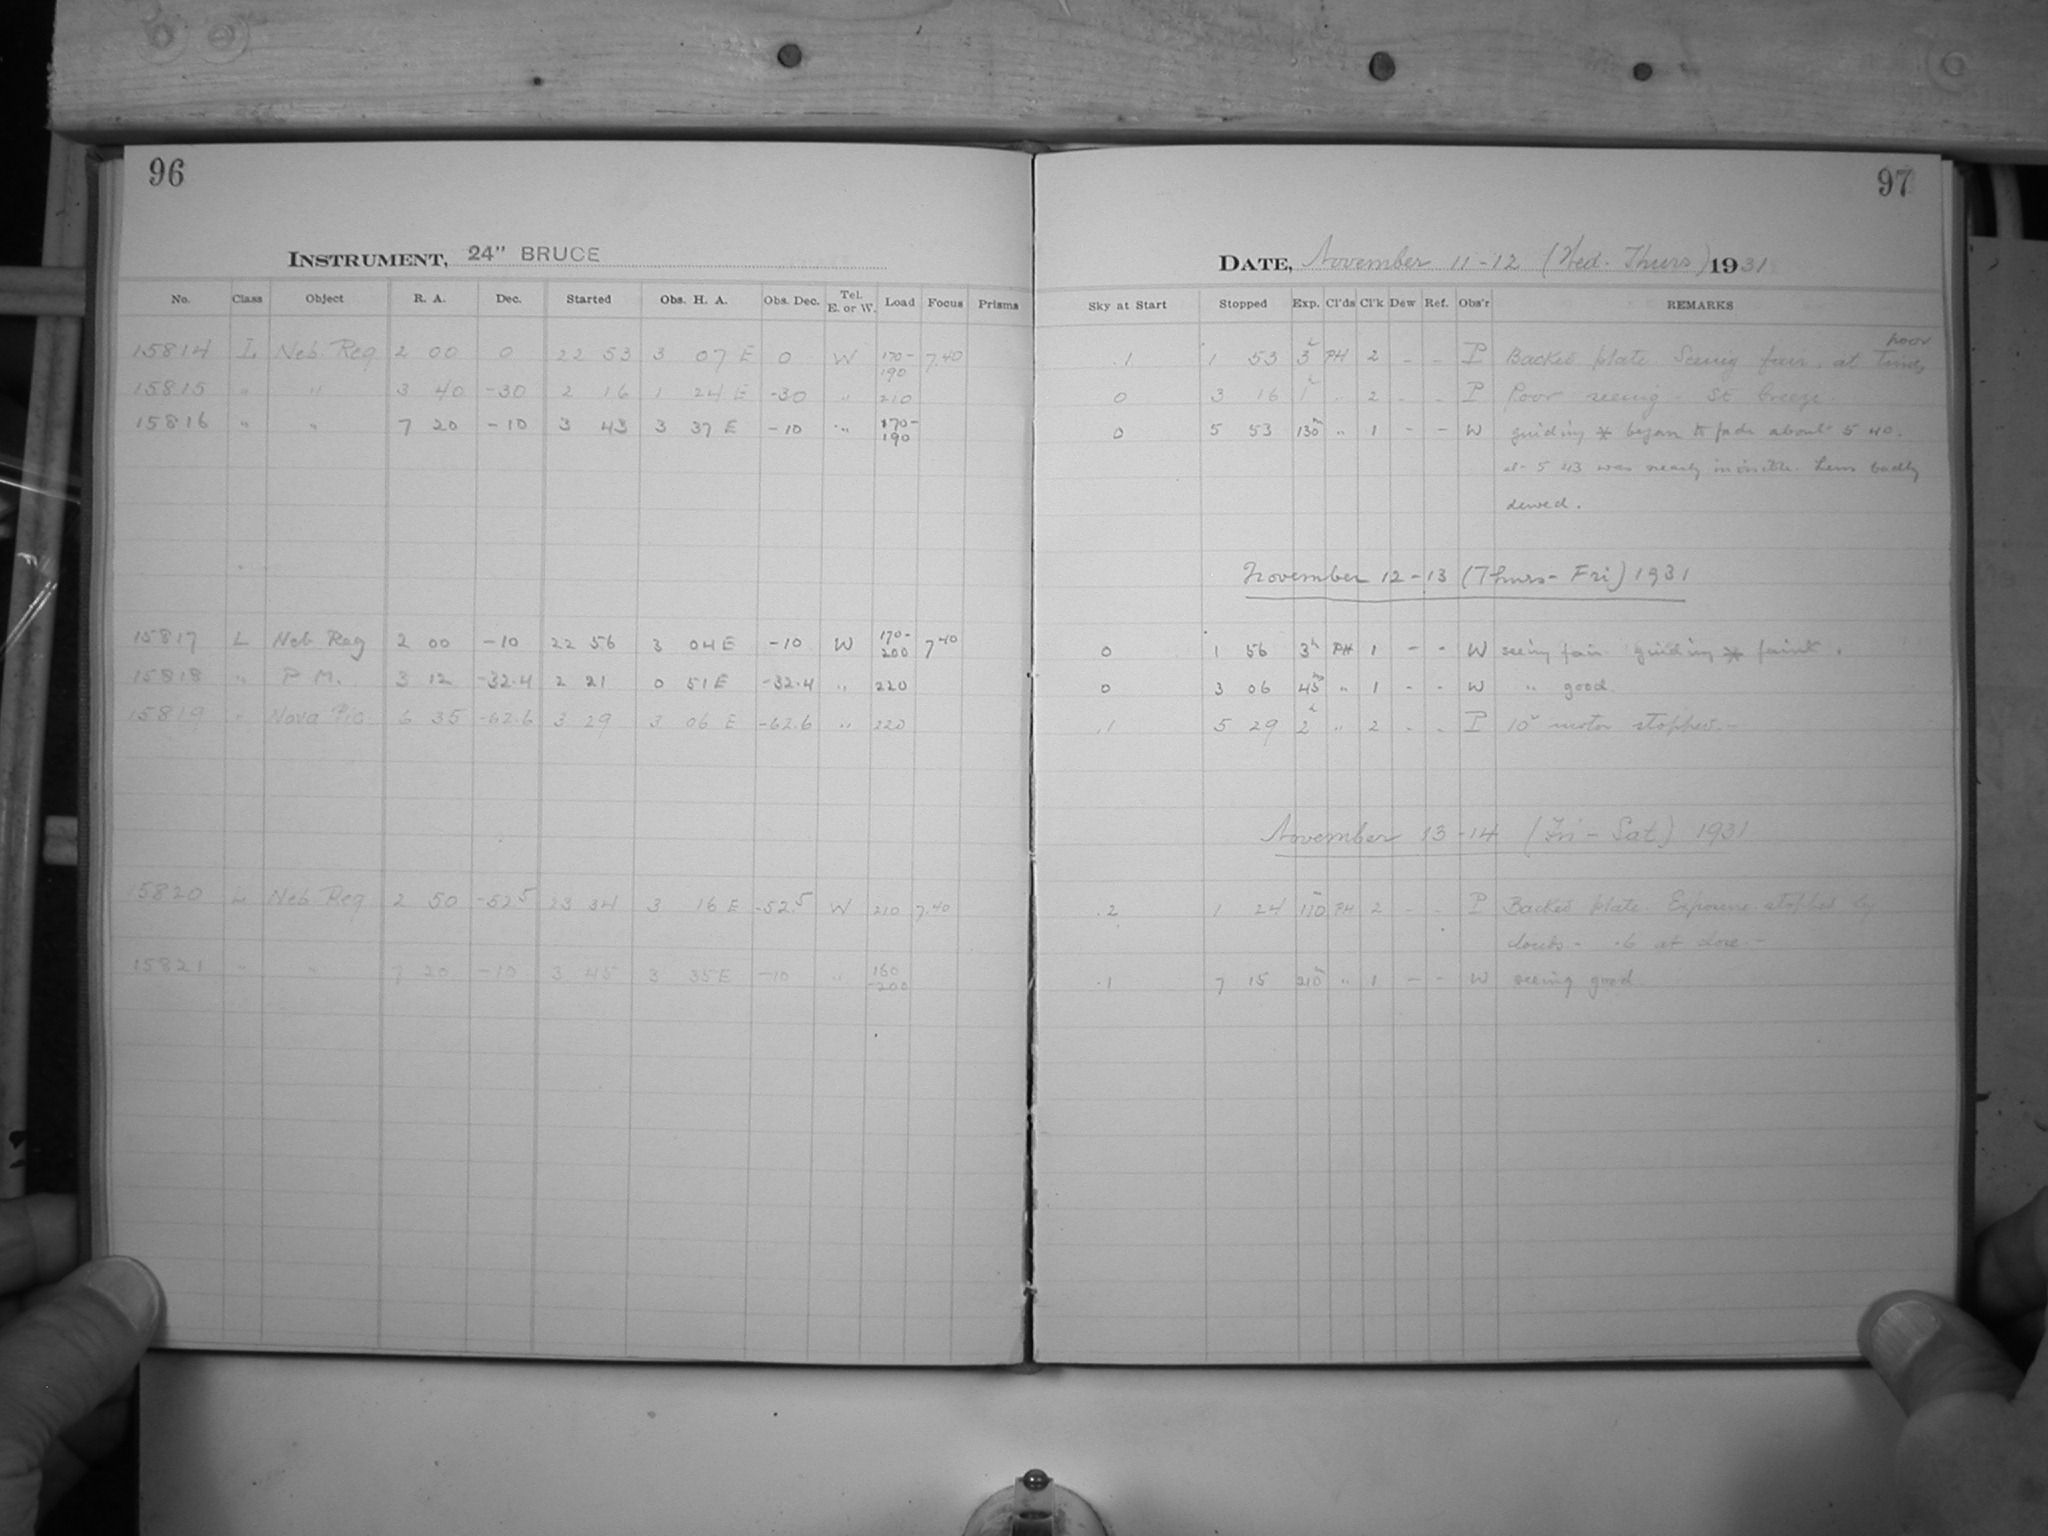 96
97
INSTRUMENT, 24" BRUCE
DATE, November 11-12 (Wed. Thurs) 1931
No. Class Object R. A. Dec. Started Obs. H. A. Obs. Dec. Tel. E. or W. Load Focus Prisms Sky at Start Stopped Exp. Cl'ds Cl'k Dew Ref. Obs'r REMARKS
15814 L Neb. Reg 2 00 0 22 53 3 07 E 0 W 170-190 7.40 .1 1 53 3h PH 2 - - P Backed plate. Seeing fair, at times poor
15815 " " 3 40 -30 2 16 1 24 E -30 " 210 0 3 16 1h " 2 - - P Poor seeing - St breeze.
15816 " " 7 20 -10 3 43 3 37 E -10 " 170-190 0 5 53 130m " 1 - - W guiding * began to fade about 5 40.
at 5 43 was nearly invisible. Lens badly
dewed.
November 12-13 (Thurs-Fri) 1931
15817 L Neb Reg 2 00 -10 22 56 3 04 E -10 W 170-200 7.40 0 1 56 3h PH 1 - - W seeing fair guiding * faint.
15818 " P. M. 3 12 -32.4 2 21 0 51 E -32.4 " 220 0 3 06 45m " 1 - - W " good.
15819 " Nova Pic. 6 35 -62.6 3 29 3 06 E -62.6 " 220 .1 5 29 2h " 2 - - P 10" motor stopped.-
November 13-14 (Fri-Sat) 1931
15820 L Neb Reg 2 50 -52.5 23 34 3 16 E -52.5 W 210 7.40 .2 1 24 110m PH 2 - - P Backed plate. Exposure stopped by
clouds.- .6 at close.-
15821 " " 7 20 -10 3 45 3 35 E -10 " 160-200 .1 7 15 210m " 1 - - W seeing good